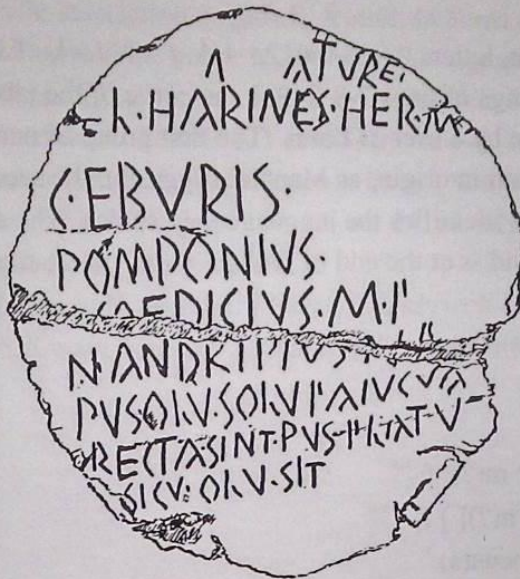 ATVRE·
L·HARINES·HER·M
C·EBVRIS
POMPONIVS
AEDICIVS·M·F
N·ANDRIPIVS
PVS·OLV·SOLV
RECTASINT·PVS·FLAT·V
SICV·OLV·SIT